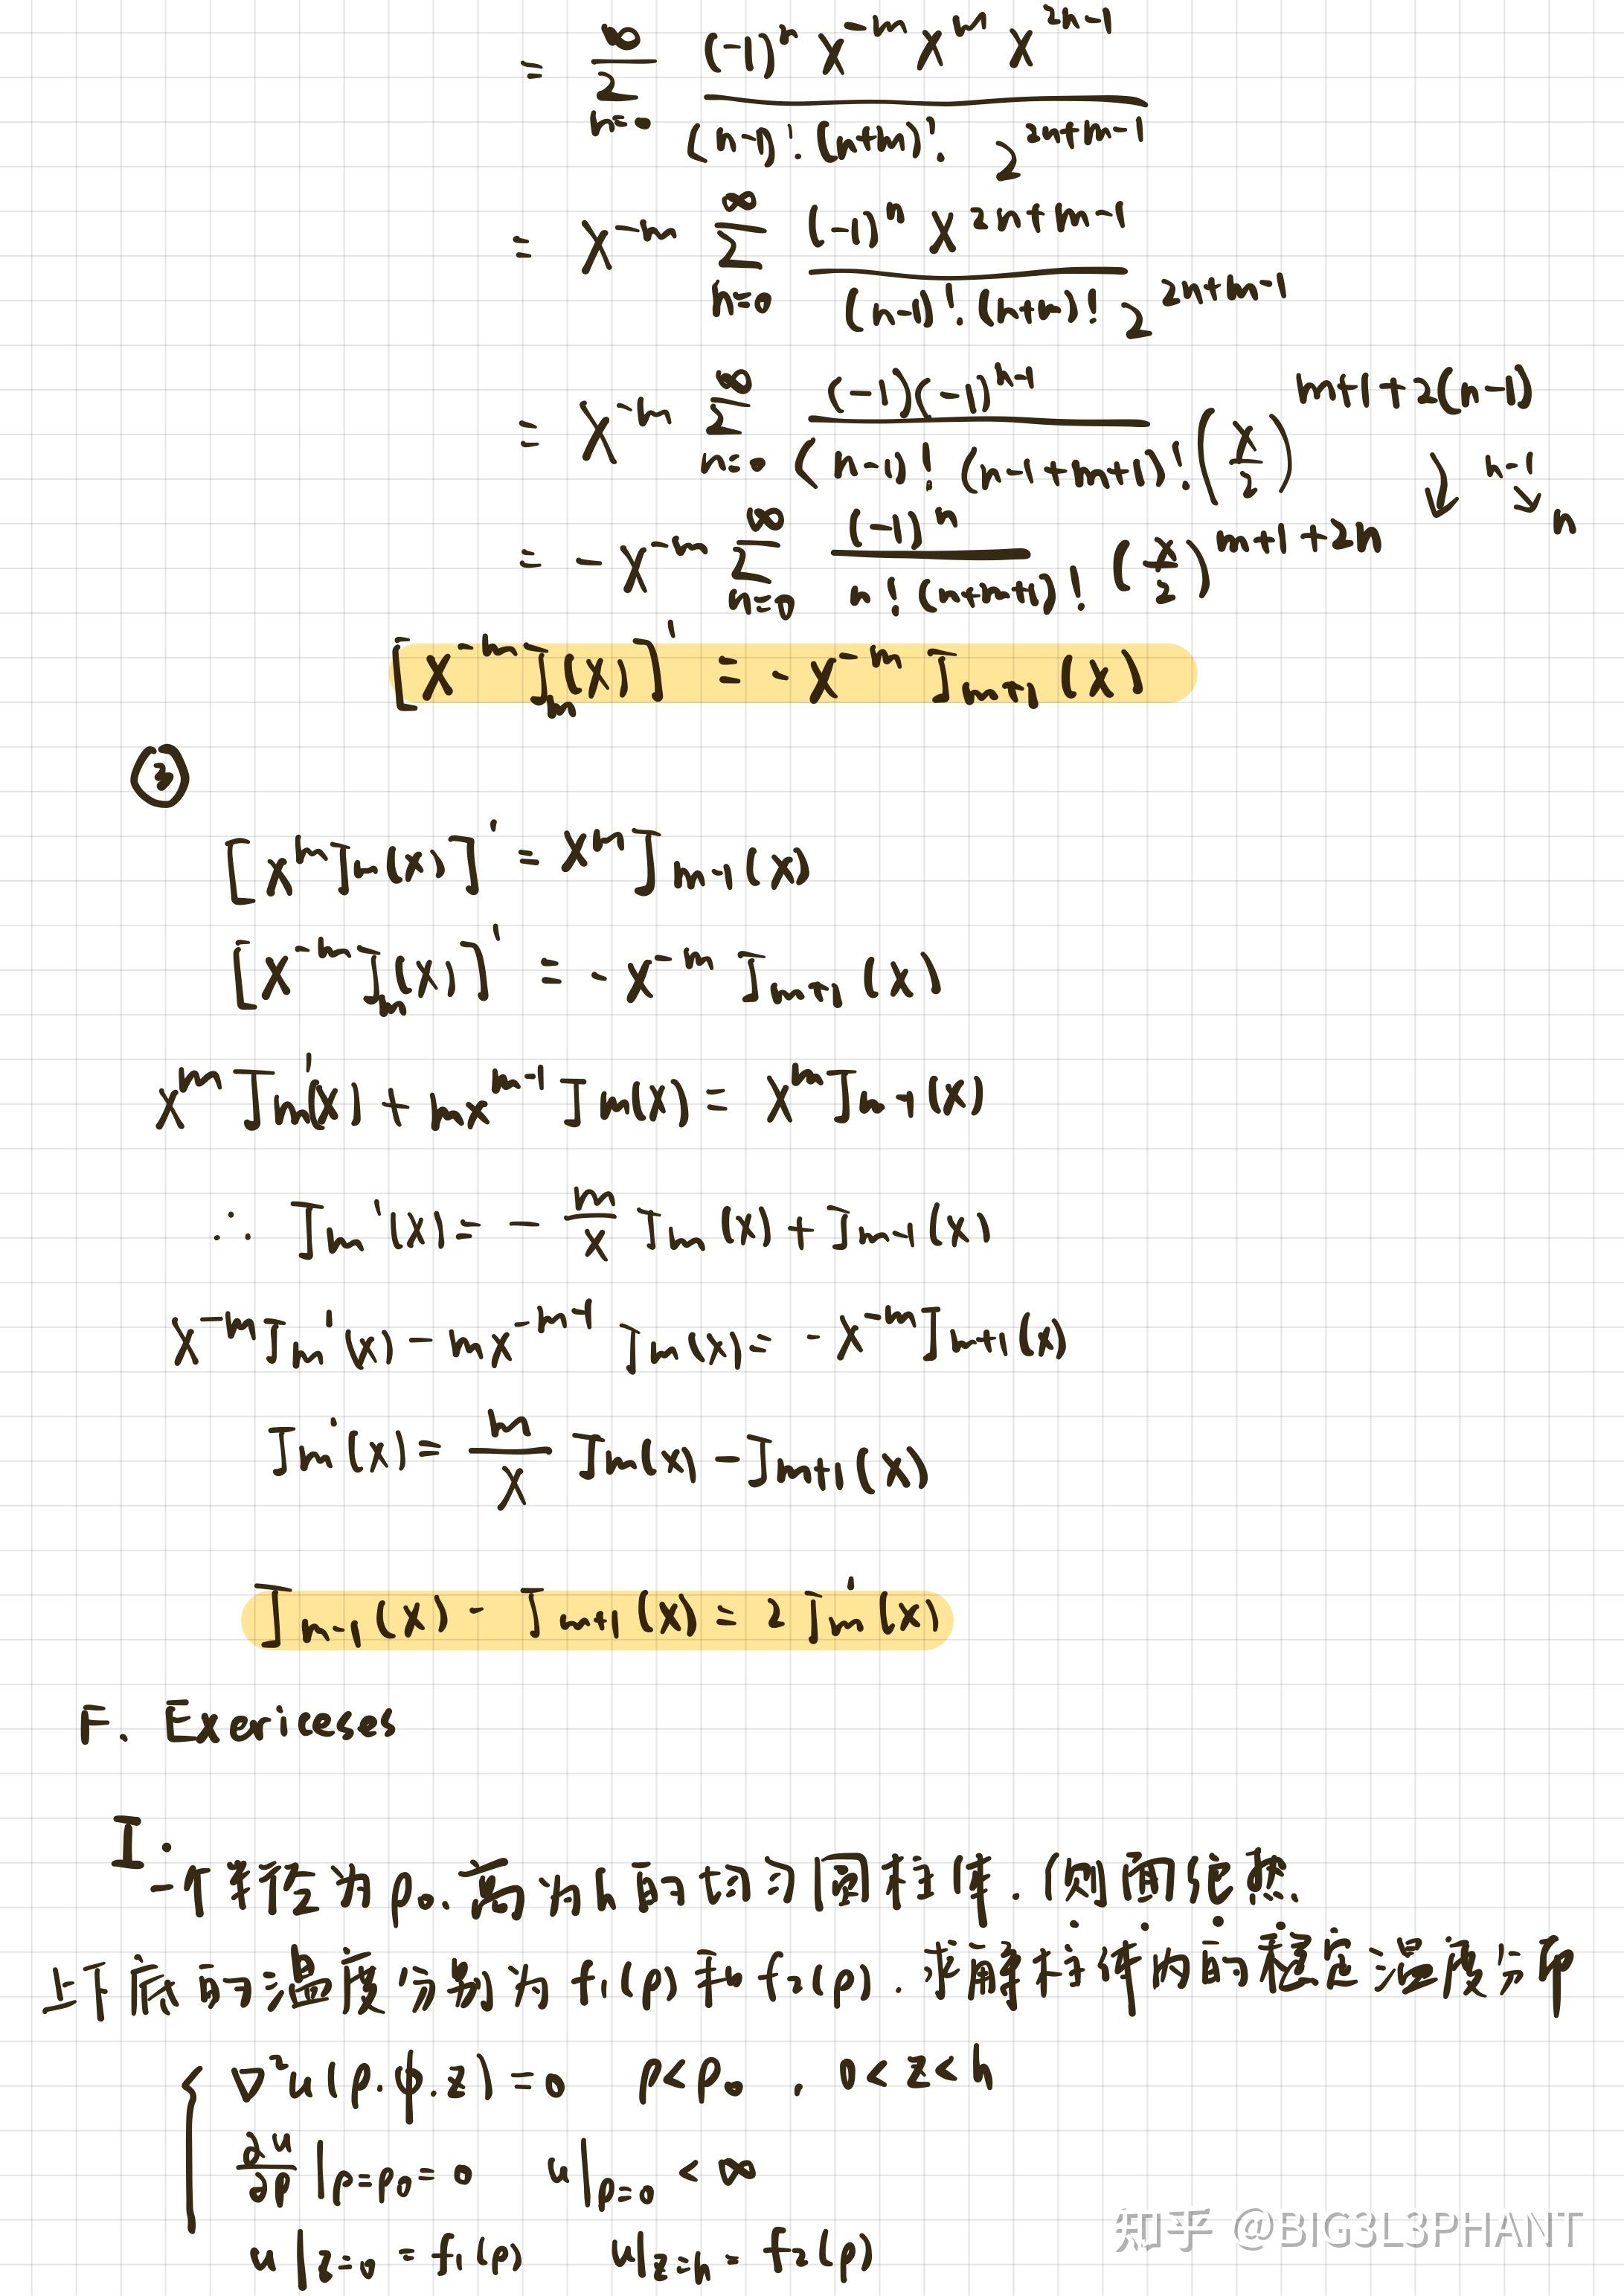 = ∑_{n=0}^{∞} \frac{(-1)^n x^{-m} x^m x^{2n-1}}{(n-1)! (n+m)! 2^{2n+m-1}}
= x^{-m} ∑_{n=0}^{∞} \frac{(-1)^n x^{2n+m-1}}{(n-1)! (n+m)! 2^{2n+m-1}}
= x^{-m} ∑_{n=0}^{∞} \frac{(-1)(-1)^{n-1}}{(n-1)! (n-1+m+1)!} (\frac{x}{2})^{m+1+2(n-1)} ↓ n-1 ↘ n
= -x^{-m} ∑_{n=0}^{∞} \frac{(-1)^n}{n! (n+m+1)!} (\frac{x}{2})^{m+1+2n}
[x^{-m} J_m(x)]' = -x^{-m} J_{m+1}(x)
③
[x^m J_m(x)]' = x^m J_{m-1}(x)
[x^{-m} J_m(x)]' = -x^{-m} J_{m+1}(x)
x^m J_m'(x) + mx^{m-1} J_m(x) = x^m J_{m-1}(x)
∴ J_m'(x) = -\frac{m}{x} J_m(x) + J_{m-1}(x)
x^{-m} J_m'(x) - mx^{-m-1} J_m(x) = -x^{-m} J_{m+1}(x)
J_m'(x) = \frac{m}{x} J_m(x) - J_{m+1}(x)
J_{m-1}(x) - J_{m+1}(x) = 2J_m'(x)
F. Exericeses
I.
一个半径为ρ₀.高为h的均匀圆柱体.侧面绝热.
上下底的温度分别为f₁(ρ)和f₂(ρ).求解柱体内的稳定温度分布
{ ∇²u(ρ.φ.z)=0 ρ<ρ₀ , 0<z<h
\frac{∂u}{∂ρ}|_{ρ=ρ₀}=0 u|_{ρ=0}<∞
u|_{z=0}=f₁(ρ) u|_{z=h}=f₂(ρ)
知乎 @BIG3L3PHANT